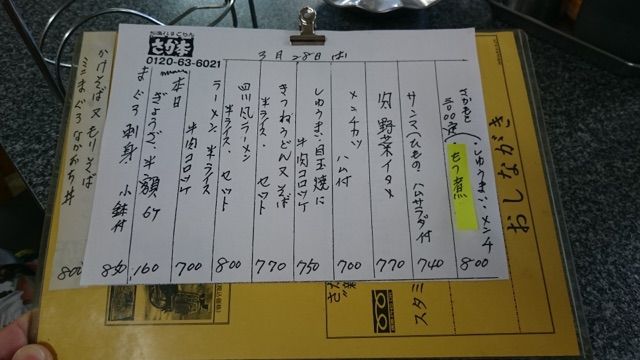 さか本
0120-63-6021
3月28日
しゅうまい、メンチ
もつ煮
800
サンマひもの、ハムサラダ付
740
肉野菜イタメ
770
メンチカツ ハム付
700
しゅうまい、目玉焼に
牛肉コロッケ
750
きつねうどん又そば
半ライス・セット
770
四川風ラーメン
半ライス・セット
800
ラーメン 半ライス
牛肉コロッケ
700
本日
ぎょうざ、半額 6ケ
160
まぐろ刺身 小鉢付
850
かけそば又もりそば
ミニまぐろなかおち丼
800
おしながき
スタミ